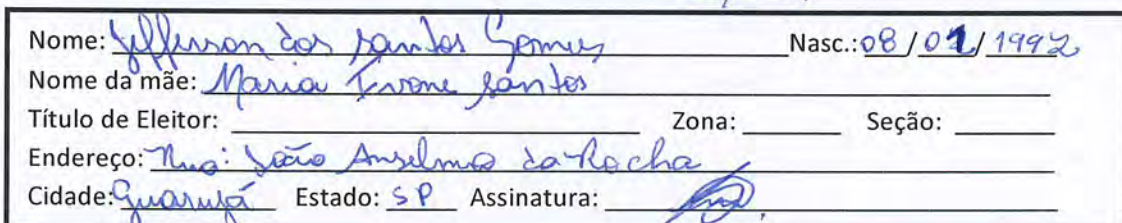 Nome: Jefferson dos santos Gomes Nasc.: 08 / 01 / 1992
Nome da mãe: Maria Ivone santos
Título de Eleitor: Zona: Seção:
Endereço: Rua: João Anselmo da Rocha
Cidade: Guarujá Estado: SP Assinatura: